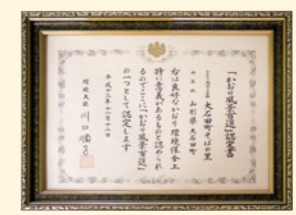 「かおり風景百選」認定書
大石田町そばの里
山形県大石田町
右は良好なかおり環境保全上
特に意義があるものと認められ
るのでここに「かおり風景百選」
の一つとして認定します
平成十三年十一月十三日
環境大臣 川口順子